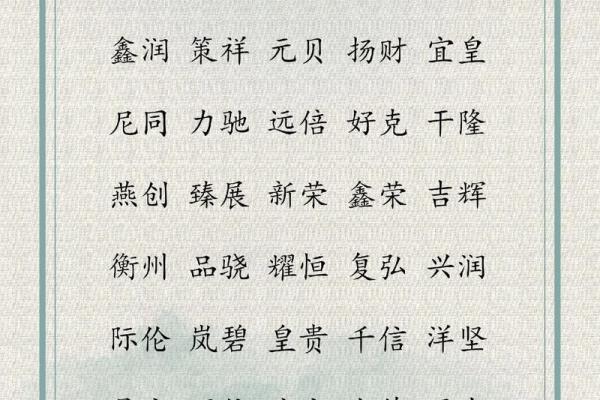 鑫润 策祥 元贝 扬财 宜皇
尼同 力驰 远倍 好克 干隆
燕创 臻展 新荣 鑫荣 吉辉
衡州 品骁 耀恒 复弘 兴润
际伦 岚碧 皇贵 千信 洋坚